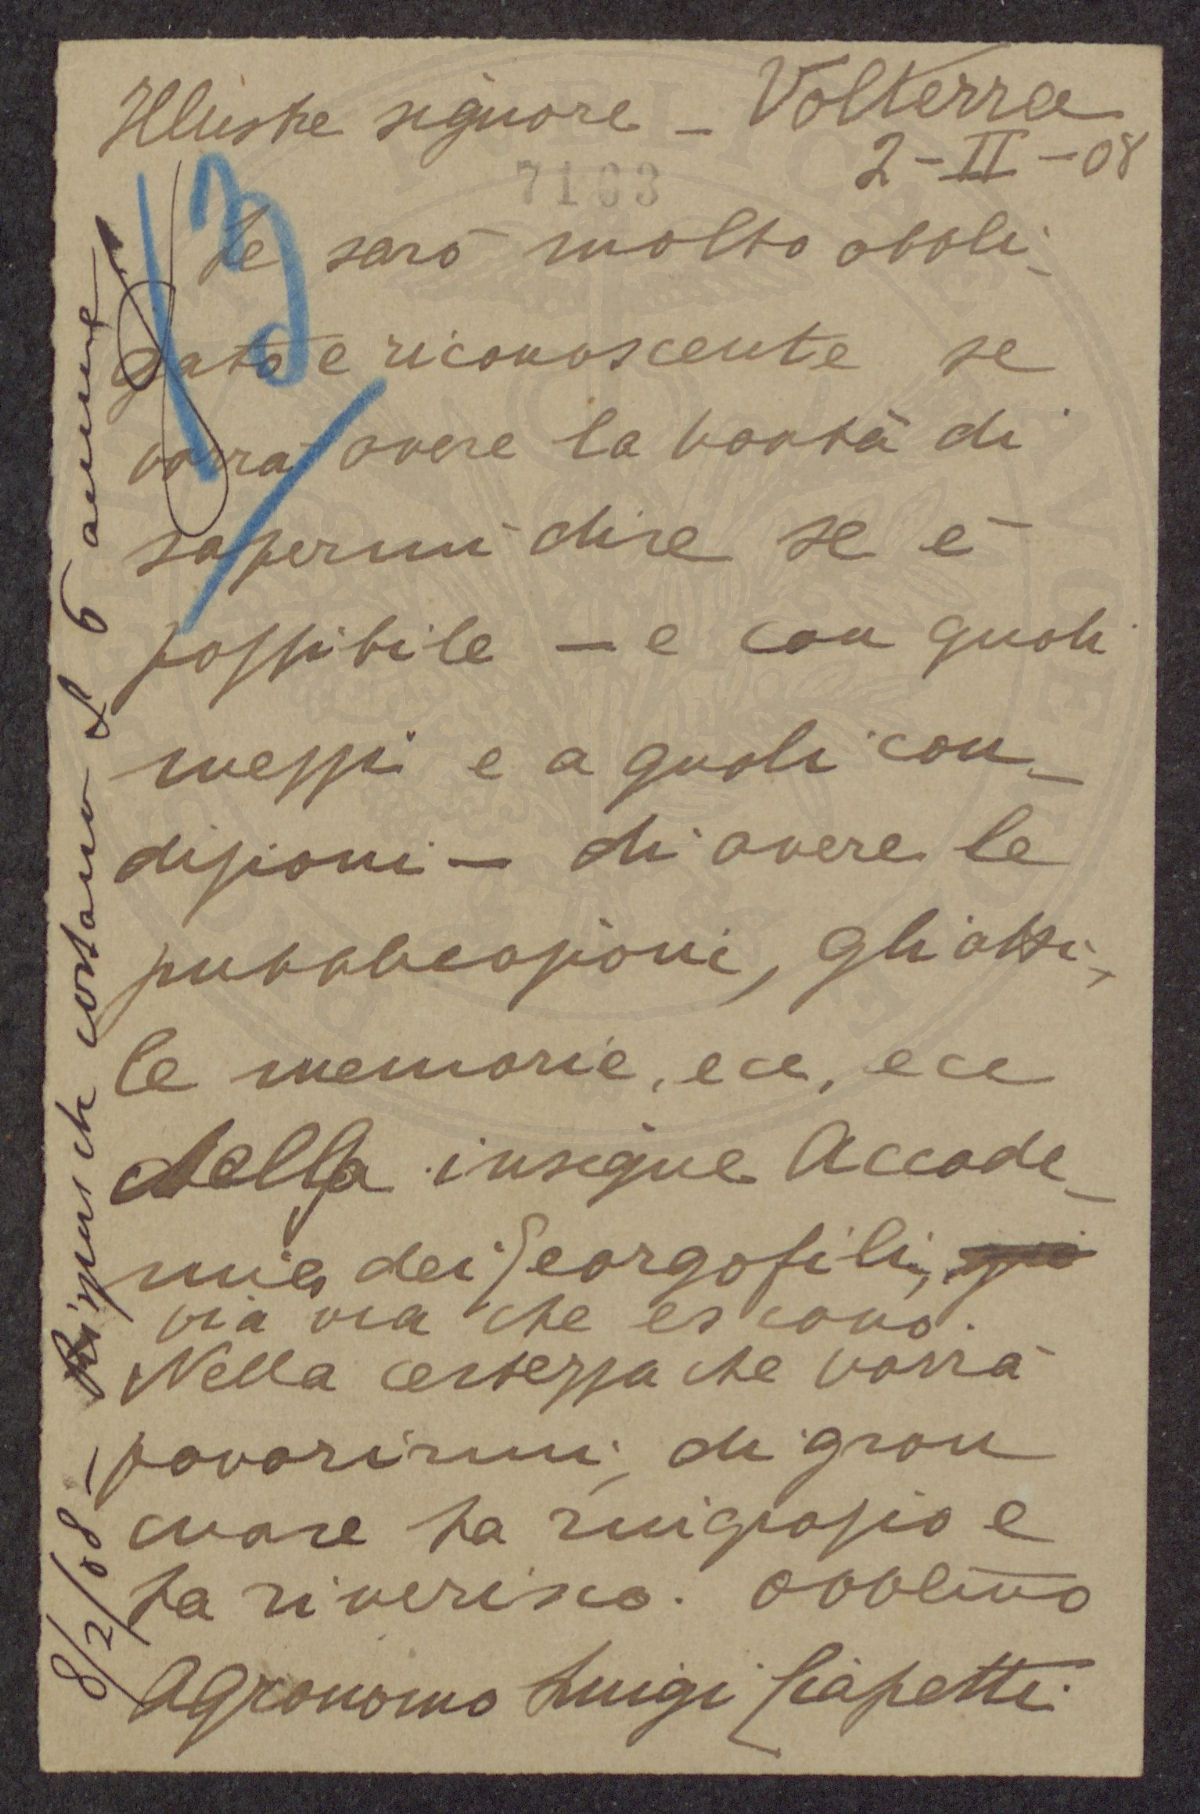 Illustre signore – Volterra
2-II-08
7103
13
Le sarò molto obbli-
gato e riconoscente se
vorrà avere la bontà di
sapermi dire se è
possibile – e con quali
mezzi e a quali con-
dizioni – di avere le
pubblicazioni, gli atti,
le memorie, ecc, ecc
della insigne Accade-
mia dei Georgofili,
via via che escono.
Nella certezza che vorrà
favorirmi, di gran
cuore la ringrazio e
la riverisco. obbl.mo
Agronomo Luigi Ciapetti
8/2/08 – che costano £ 6 annue